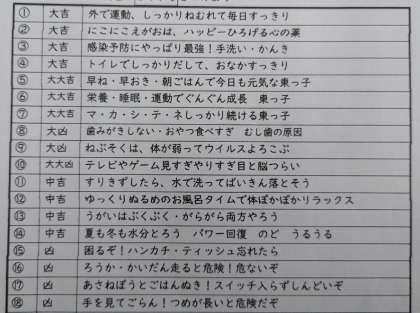 ① 大吉 外で運動、しっかりねむれて毎日すっきり
② 大吉 にこにこえがおは、ハッピーひろげる心の薬
③ 大吉 感染予防にやっぱり最強！手洗い・かんき
④ 大吉 トイレでしっかりだして、おなかすっきり
⑤ 大大吉 早ね・早おき・朝ごはんで今日も元気な東っ子
⑥ 大大吉 栄養・睡眠・運動でぐんぐん成長 東っ子
⑦ 大大吉 マ・カ・シ・テ・ネしっかり続ける東っ子
⑧ 大凶 歯みがきしない・おやつ食べすぎ むし歯の原因
⑨ 大凶 ねぶそくは、体が弱ってウイルスよろこぶ
⑩ 大大凶 テレビやゲーム見すぎやりすぎ目と脳つらい
⑪ 中吉 すりきずしたら、水で洗ってばいきん落とそう
⑫ 中吉 ゆっくりぬるめのお風呂タイムで体ぽかぽかリラックス
⑬ 中吉 うがいはぶくぶく・がらがら両方やろう
⑭ 中吉 夏も冬も水分とろう パワー回復 のど うるうる
⑮ 凶 困るぞ！ハンカチ・ティッシュ忘れたら
⑯ 凶 ろうか・かいだん走ると危険！危ないぞ
⑰ 凶 あさねぼうとごはんぬき！スイッチ入らずしんどいぞ
⑱ 凶 手を見てごらん！つめが長いと危険だぞ